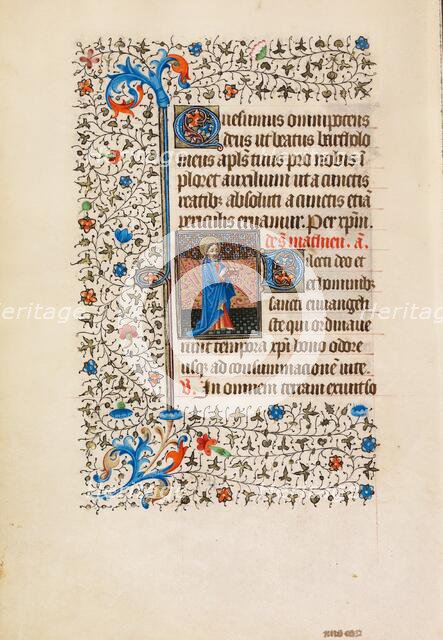 Quesumus omnipotens
deus ut beatus bartholo
meus apls tuus pro nobis i
ploret auxilium ut a cunctis
reatibus absoluti a cunctis etiā
periculis eruamur. Per xp̄m.
de s. matheu. a.
Dilecti deo et
hominibus
sancti euuangeli
ste qui ordinaue
runt tempora xp̄i bono odore
usq ad consummationē uite.
V. In omnem terram exiuit so
Heritage
Heritage
Heritage